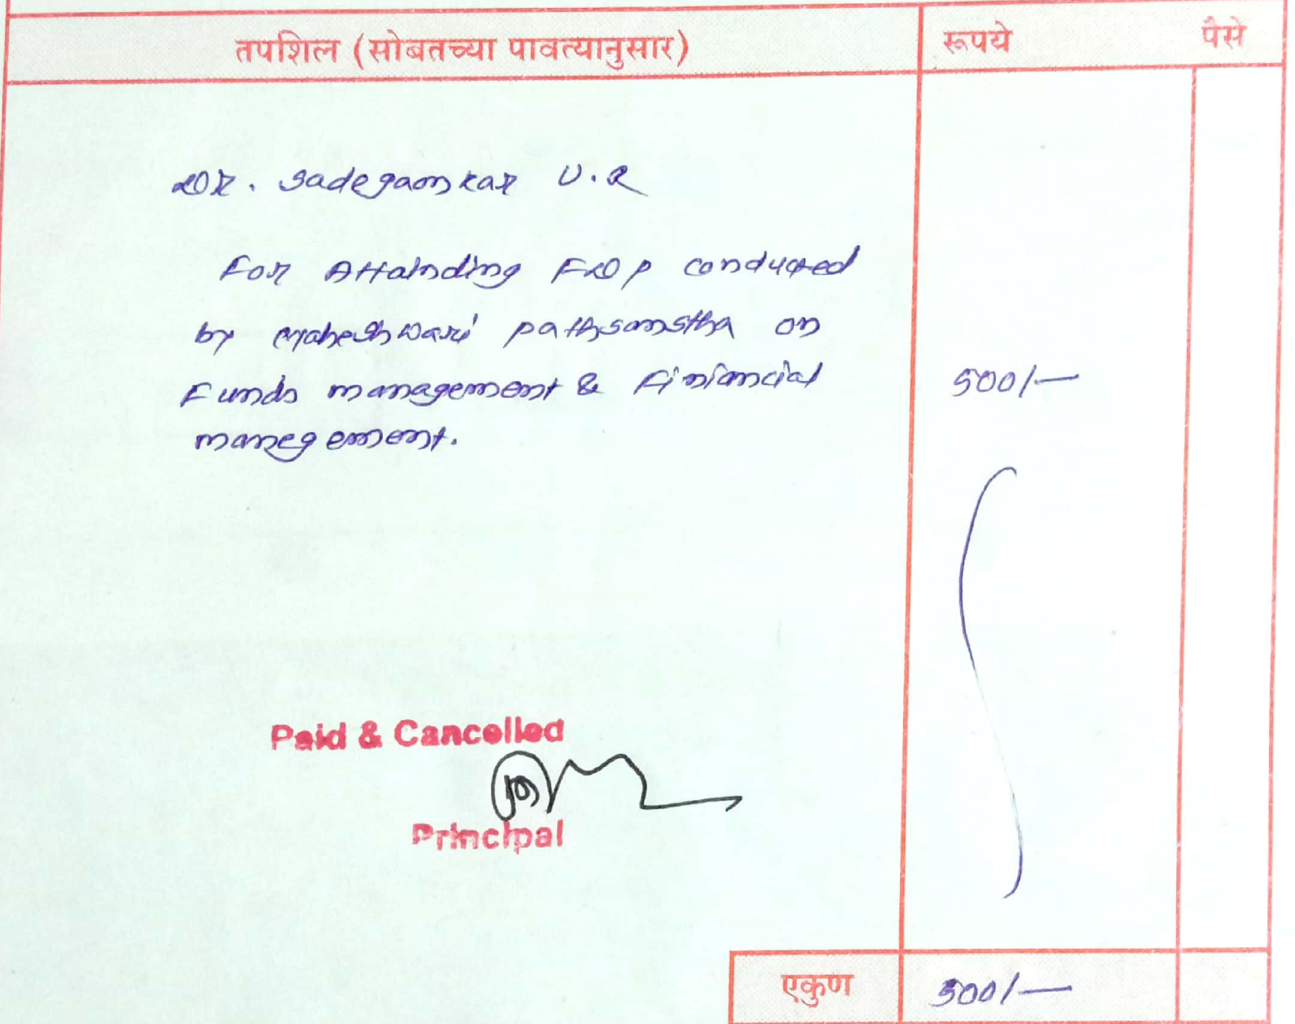 तपशिल (सोबतच्या पावत्यानुसार) रूपये पैसे
Dr. Sadegaonkar U.R
For Attainding FDP conducted
by Maheshwari pathsanstha on
Funds management & Finiancial 500/-
manegement.
Paid & Cancelled
Principal
एकुण 500/-